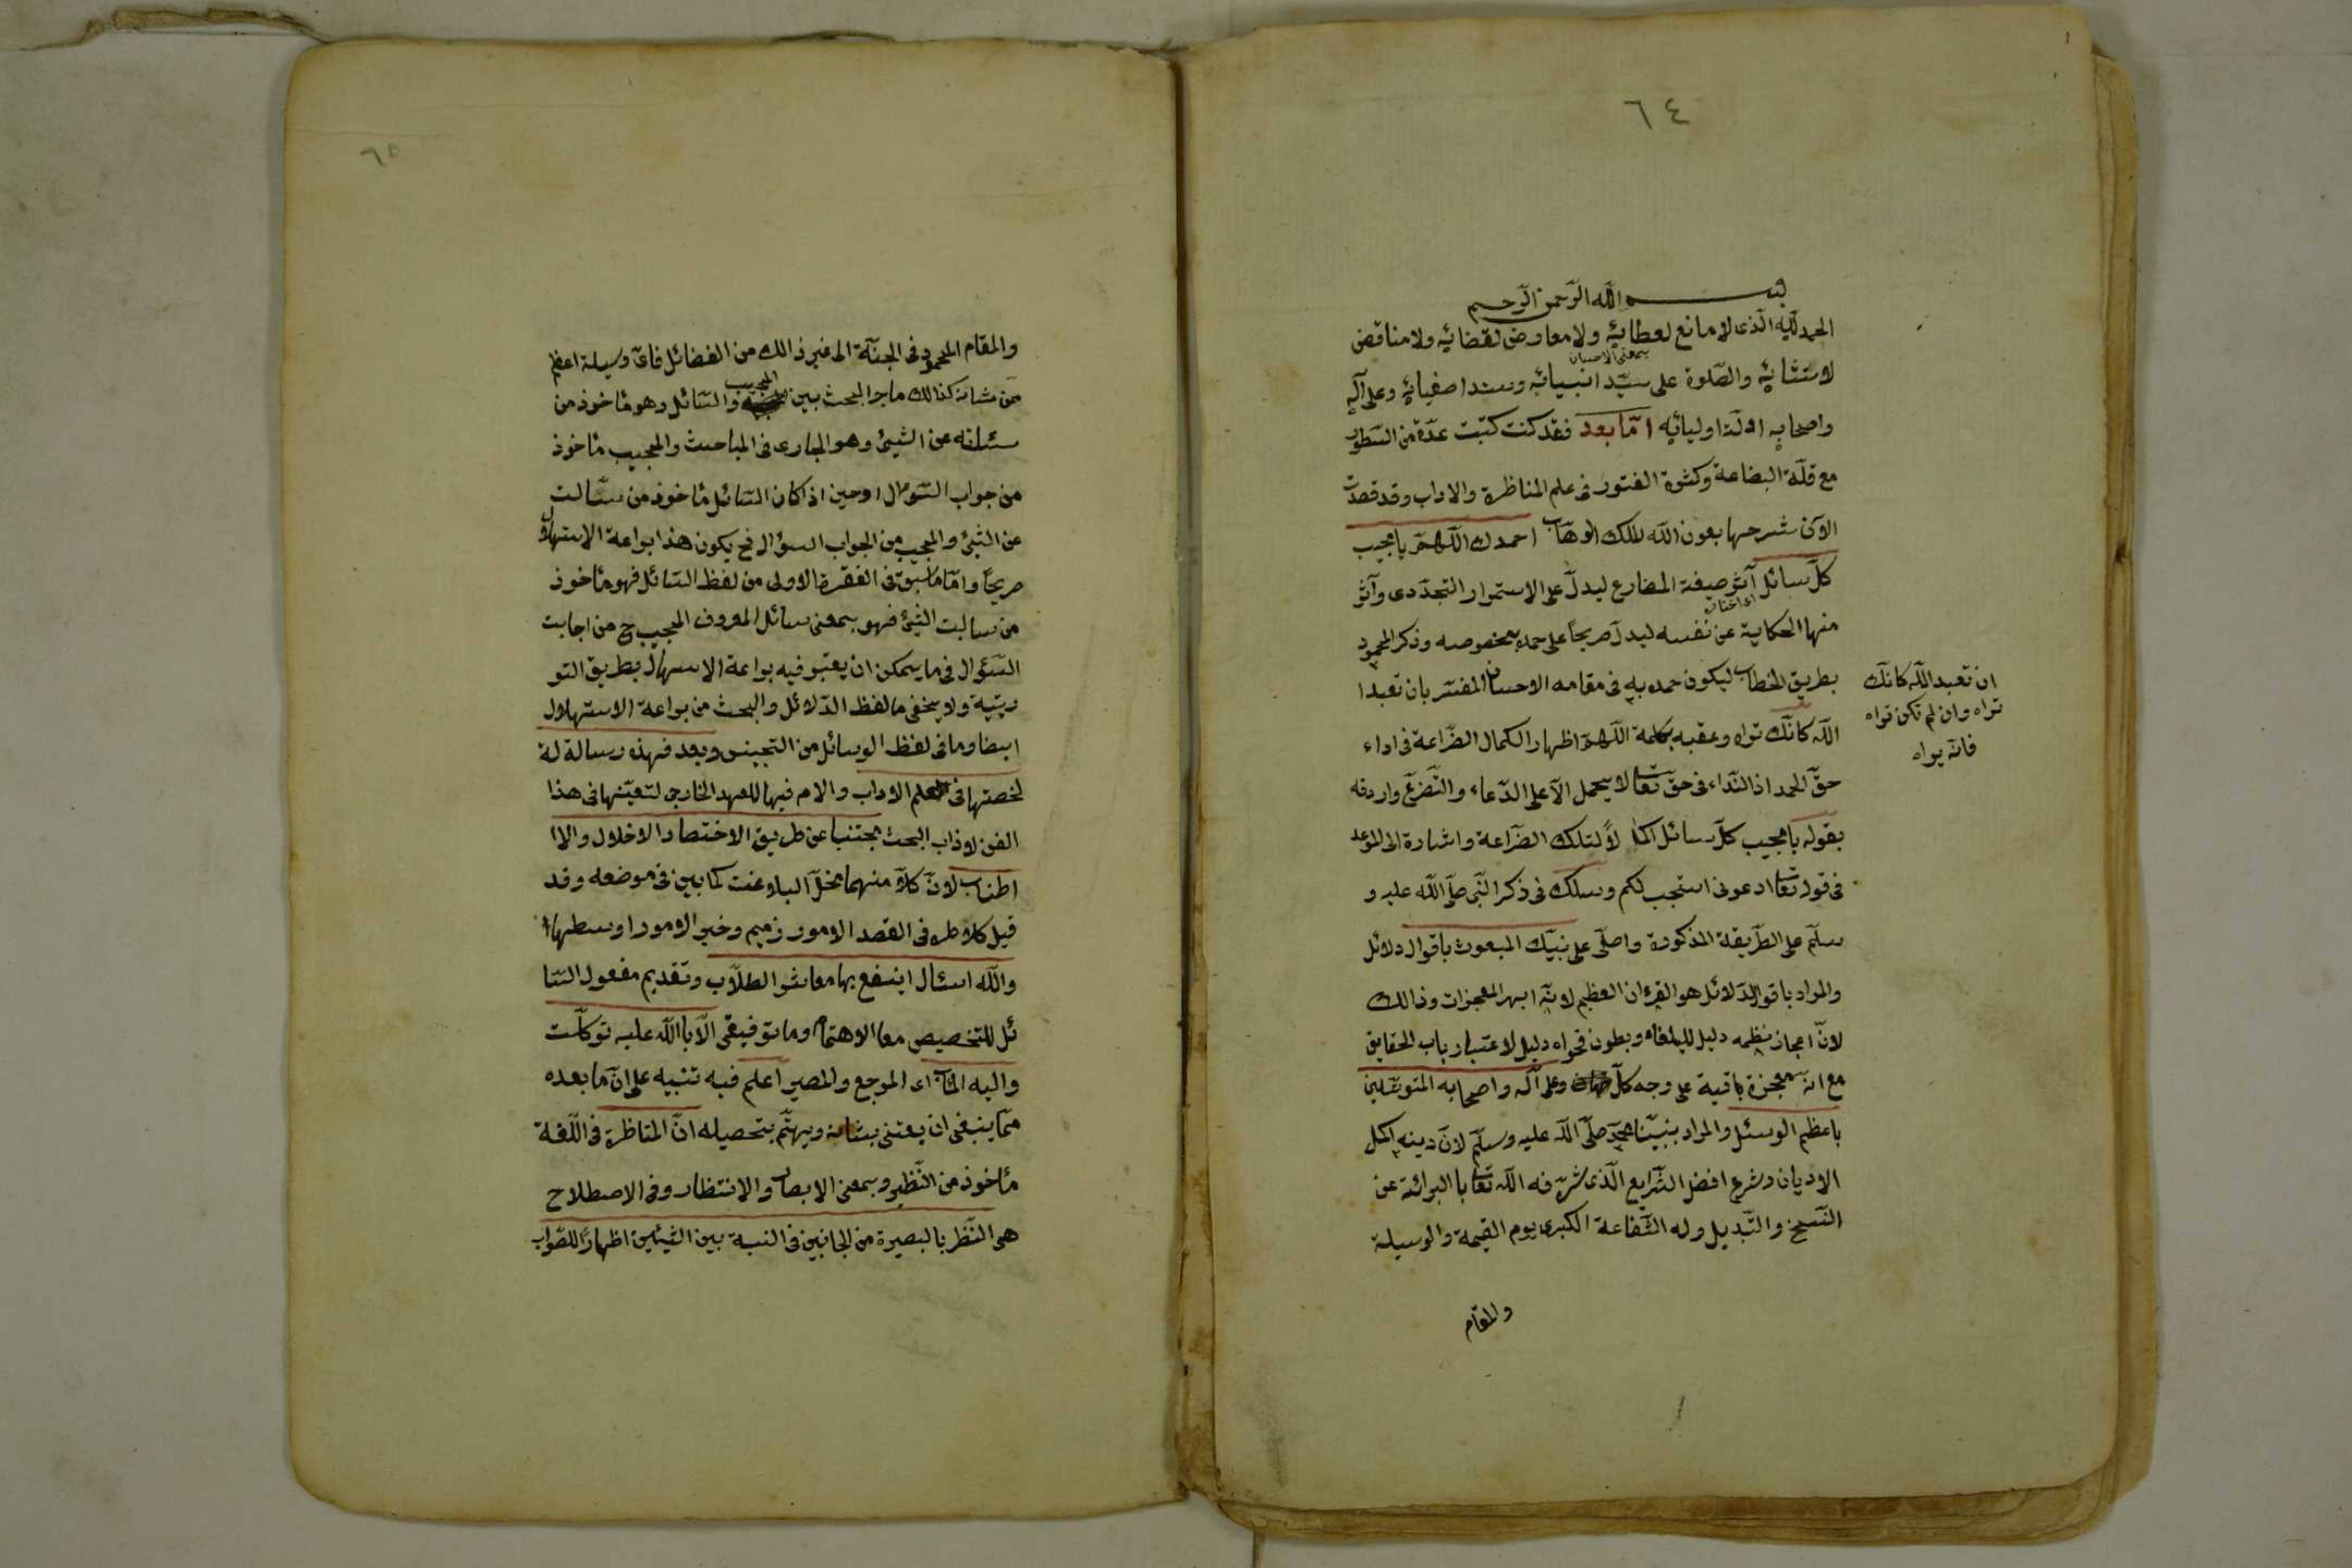 ٦٤
بسم الله الرحمن الرحيم
الحمد لله الذى لا مانع لعطائه ولا معارض لقضائه ولا مناقض
بمعنى الاحسان
لاستثنائه والصلوة على سيد انبيائه وسند اصفيائه وعلى آله
واصحابه ادلة اوليائه امّا بعد فقد كنت كتبت عدة من السطور
مع قلة البضاعة وكثرة الفتور فى علم المناظرة والاداب وقد قصدت
الآن شرحها بعون الله الملك الوهّاب احمدك اللّهمّ يا مجيب
كلّ سائل آثر صيغة المضارع ليدلّ على الاستمرار التجدّدى وآثر
منها الحكاية عن نفسه ليدل صريحاً على حمده بخصوصه وذكر المحمود
بطريق الخطاب ليكون حمده به فى مقامه الاحسان المفسّر بان تعبدا
ان تعبد الله كانّك
تراه وان لم تكن تراه
فانّه يراه
الله كانّك تراه وعقبه بكلمة اللّهمّ اظهار الكمال الضّراعة فى اداء
حقّ الحمد اذ النّداء فى حقّ تعا لا يحمل الّا على الدّعاء والتّضرّع واردفه
بقوله يا مجيب كلّ سائل اكمالاً لتلك الضّراعة واشارة الى الموعد
فى قوله تعا ادعونى استجب لكم وسلك فى ذكر النّبى صلّى الله عليه و
سلّم على الطّريقة المذكورة واصلّى على نبيّك المبعوث باقوال دلائل
والمراد باقوال الدّلائل هو القرءان العظيم لانّه ابهر المعجزات وذالك
لانّ اعجاز نظمه دليل للبلغاء وبطون فحواه دليل لاعتبار رباب الحقايق
مع انّه معجزة باقية على وجه كلّ وعلى آله واصحابه المتوسّلين
باعظم الوسئل والمراد بنبيّنا محمّد صلّى الله عليه وسلّم لانّ دينه اكمل
الاديان وشرع افضل الشّرايع الّذى شرّفه الله تعا با البرائة عن
النّسخ والتّبديل وله الشّفاعة الكبرى يوم القيمة والوسيلة
والمقام
٦٥
والمقام المحمود فى الجنّة الى غير ذالك من الفضائل فاىّ وسيلة اعظم
من شانه كذالك ما جرا البحث بين المجيب والسّائل وهو مأخوذ من
سئلته عن الشيئ وهو الجارى فى المباحث والمجيب مأخوذ
من جواب السّؤال اوحين اذا كان السّائل مأخوذ من سّالت
عن الشّيئ والمجيب من الجواب السؤال فح يكون هذا براعة الاستهلال
صريحاً وامّا ما سبق فى الفقرة الاولى من لفظ السّائل فهو مأخوذ
من سالت الشّيئ فهو بمعنى سائل المعروف المجيب ح من اجابت
السّؤال فى ما يمكن ان يعتبر فيه براعة الاستهلال بطريق التو
ريتية ولا يخفى ما لفظ الدّلائل والبحث من براعة الاستهلال
ايضا وما فى لفظ الوسائل من التجنيس وبعد فهذه رسالة لة
لخصتها فى علم الاداب والام فيها للعهد الخارجى لتعيّنها فى هذا
الفن لاذاب البحث مجتنبا عن طريق الاختصار الاخلال والاا
اطناب لانّ كلّا منهما يخلّ البلاغت كما بين فى موضعه وقد
قيل كلا طرفى القصد الامور زميم وخير الامور اوسطها
والله اسئال اينفع بها معاشر الطلّاب وتقديم مفعول السّا
ئل للتخصيص معا الاهتمام وما توفيقى الّا با الله عليه توكلّت
واليه المأب اى المرجع والمصير اعلم فيه تنبيه على انّ ما بعده
ممّا ينبغى ان يعتنى بشانه ويهتّم بتحصيله انّ المناظرة فى اللّغة
مأخوذ من النّظير وبمعنى الابصار والانتظار وفى الاصطلاح
هى النّظر بالبصيرة من الجانبين فى النسبة بين الشيئين اظهاراً للصّواب